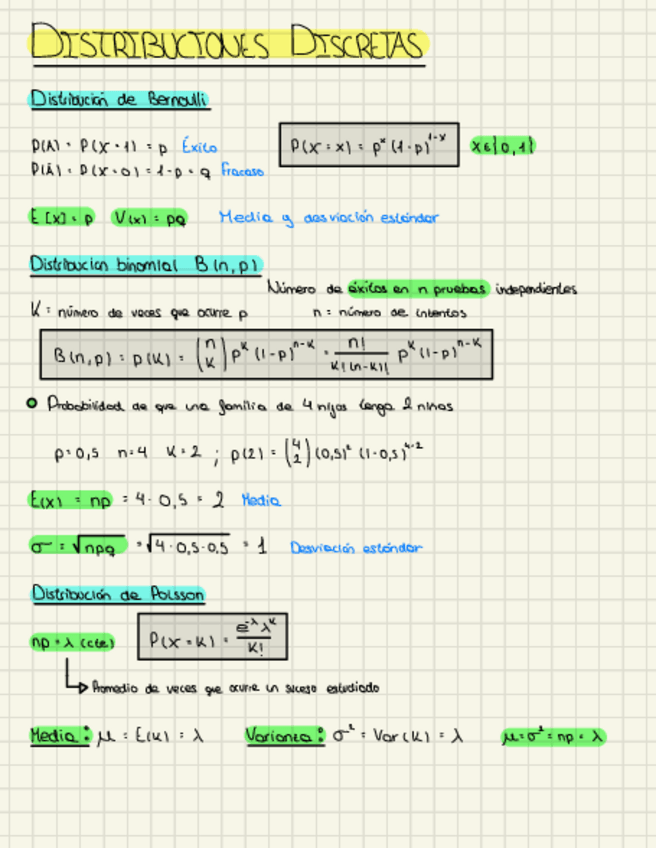 DISTRIBUCIONES DISCRETAS
Distribución de Bernoulli
P(A) = P(X=1) = p Éxito
P(Ā) = P(X=0) = 1-p = q Fracaso
P(X=x) = pˣ (1-p)¹⁻ˣ x∈{0,1}
E[x] = p V(x) = pq Media y desviación estándar
Distribución binomial B(n,p)
Número de éxitos en n pruebas independientes
K = número de veces que ocurre p n = número de intentos
B(n,p) = p(K) = (n K) p^K (1-p)^(n-K) = n! / K!(n-K)! p^K (1-p)^(n-K)
Probabilidad de que una familia de 4 hijos tenga 2 niños
p=0,5 n=4 K=2 ; p(2) = (4 2) (0,5)² (1-0,5)⁴⁻²
E(x) = np = 4·0,5 = 2 Media
σ = √npq = √4·0,5·0,5 = 1 Desviación estándar
Distribución de Poisson
np = λ (cte) P(X=K) = e^-λ λ^K / K!
Promedio de veces que ocurre un suceso estudiado
Media: μ = E(K) = λ Varianza: σ² = Var(K) = λ μ=σ²=np=λ